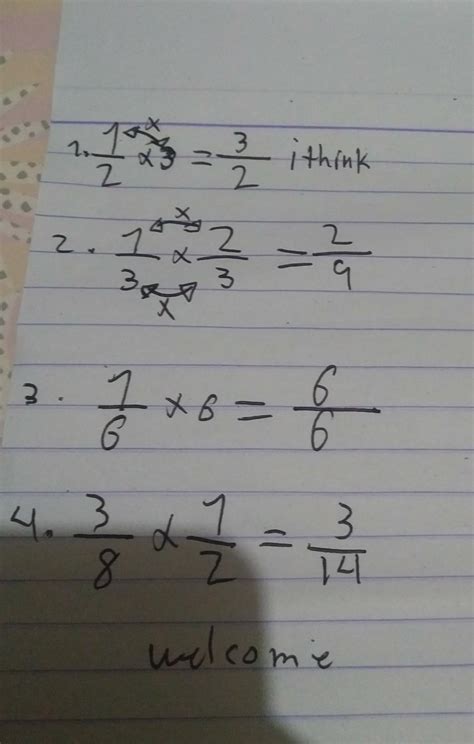 1. 1/2 x 3 = 3/2 ithink
2. 1/3 x 2/3 = 2/9
3. 1/6 x 6 = 6/6
4. 3/8 x 1/2 = 3/14
welcome